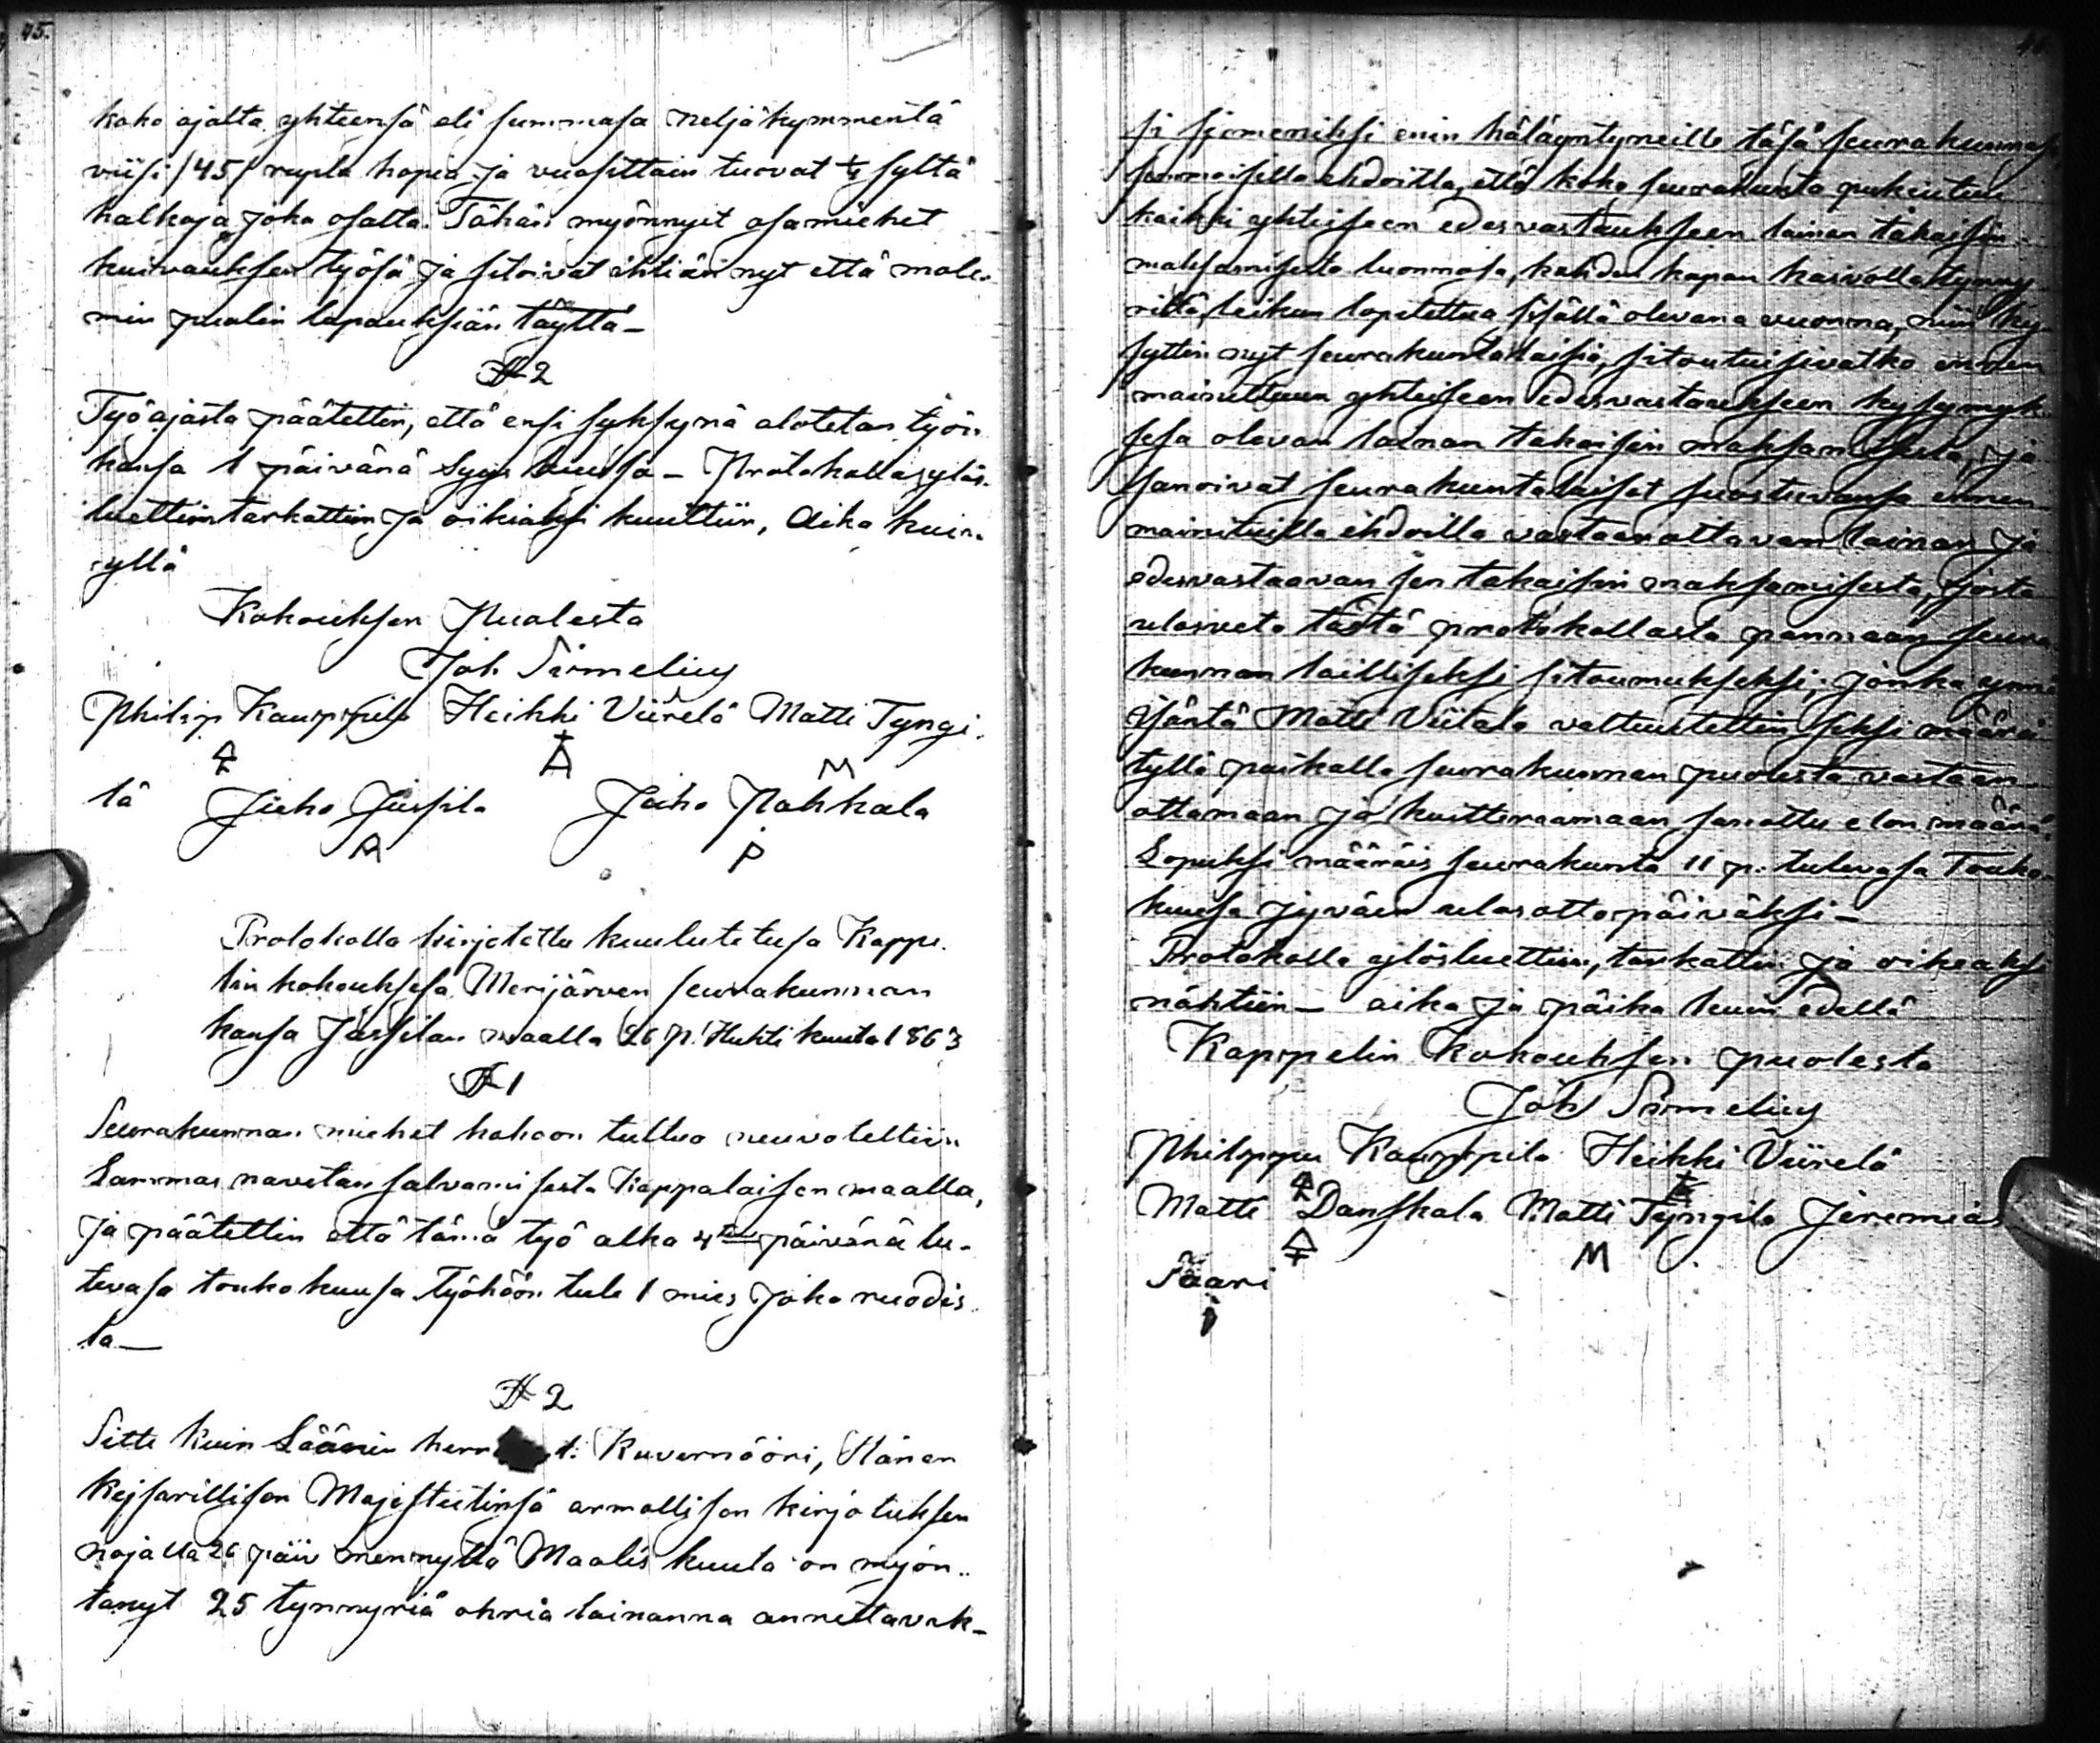 45.
koko ajalta yhteensä eli summasa neljäkymmentä
viisi /45/ rupla hopia ja vuasittain tuovat ½ syltä
halkoja joka osalta. Tähän myönnyit osamiehet
kuivauksen työsä ja sitoivat ihtiän nyt että molem
min puolin lupauksian täyttä –
§ 2
Työajasta päätettin, että ensi syksynä alotetan työn
kansa 1 päivänä Syys kuusa – Protokolla ylös
luettiin tarkattiin ja oikiaksi kuultiin, Aika kuin
yllä
Kokouksen Puolesta
Joh Sirmelius
Philip Kauppila Heikki Viirelä Matti Tyngi
lä Juho Jussila Juho Pahkala
M
A P
Protokolla kirjotettu kuulutetusa Kappe
lin kokouksesa Merijärven seurakunnan
kansa Jussilan maalla 26 p: Huhti kuuta 1863
§ 1
Seurakunnan miehet kokoon tultua neuvoteltiin
Lammas navetan salvamisesta Kappalaisen maalla,
ja päätettin että tämä työ alka 4 päivänä tu-
levasa toukokuusa Työhöön tule 1 mies joka ruodis
ta –
§ 2
Sitte kuin Läänin herra Kuvernööri, Hänen
Kejsarillisen Majestetinsä armollisen kirjotuksen
nojalla 26 päiv mennyttä Maalis kuuta on myön
tänyt 25 tynnyriä ohria lainanna annettavak-
si sjemeniksi enin hälääntyneille täsä seurakunnasa
semmoisilla ehdoilla, että koko seurakunta
kaikki yhteiseen edesvastaukseen lainan takaisin
maksamisesta luonnosa, kahden kapan kasvolla tynny
riltä, leikun lopetettua sisällä olevana vuonna, niin ky
syttin nyt seurakuntalaisia, sitoutuisivatko ennen
mainittuun yhteiseen edesvastaukseen kysymyk
sesa olevan lainan takaisin maksamisesta, ja
sanoivat seurakuntalaiset suostuvansa ennen
mainituilla ehdoilla vastaanottavan lainan ja
edesvastaavan sen takaisin maksamisesta, josta
ulosveto tästä protokollasta pannaan seura
kunnan lailliseksi sitoumukseksi; jonka ynnä
Isäntä Matti Viitala valtuutettin siksi määrä
tyllä paikalla seurakunnan puolesta vastaan
ottamaan ja kuitteraamaan sanottu elon määrä.
Lopuksi määräis seurakunta 11 p: tulevasa Touko
kuusa jyväin ulosottopäiväksi –
Protokolla ylösluettiin, tarkattin ja oikeaksi
nähtiin – aika ja paika kuin edellä
Kappelin Kokouksen puolesta
Joh Sirmelius
Philippu Kauppila Heikki Viirelä
Matti Danskala Matti Tyngilä Jeremias
M
Saari